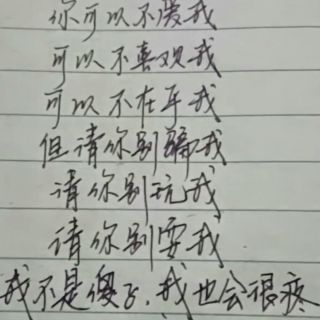 你可以不爱我
可以不喜欢我
可以不在乎我
但请你别骗我
请你别玩我
请你别耍我
我不是傻子,我也会很疼